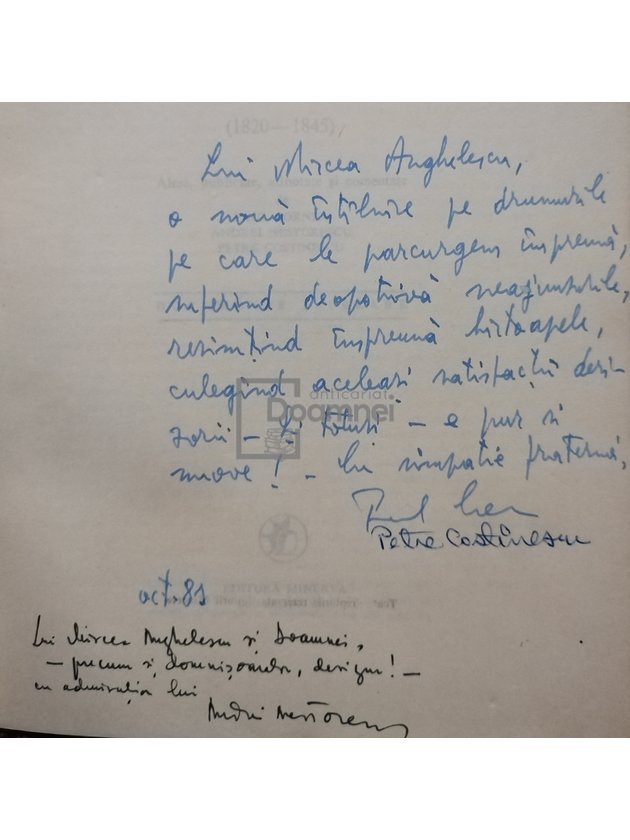 (1820—1845)
Lui Mircea Anghelescu,
o nouă întîlnire pe drumurile
pe care le parcurgem împreună,
suferind deopotrivă neajunsurile,
resimțind împreună hîrtoapele,
culegînd aceleași satisfacții deri-
zorii — Și totuși — e pur si
muove! — Cu simpatie fraternă,
Petre Costinescu
oct. 81
EDITURA MINERVA
Lui Mircea Anghelescu și Doamnei,
— precum și domnișoarelor, desigur! —
cu admirația lui
Andrei Nestorescu
anticariat
Doamnei